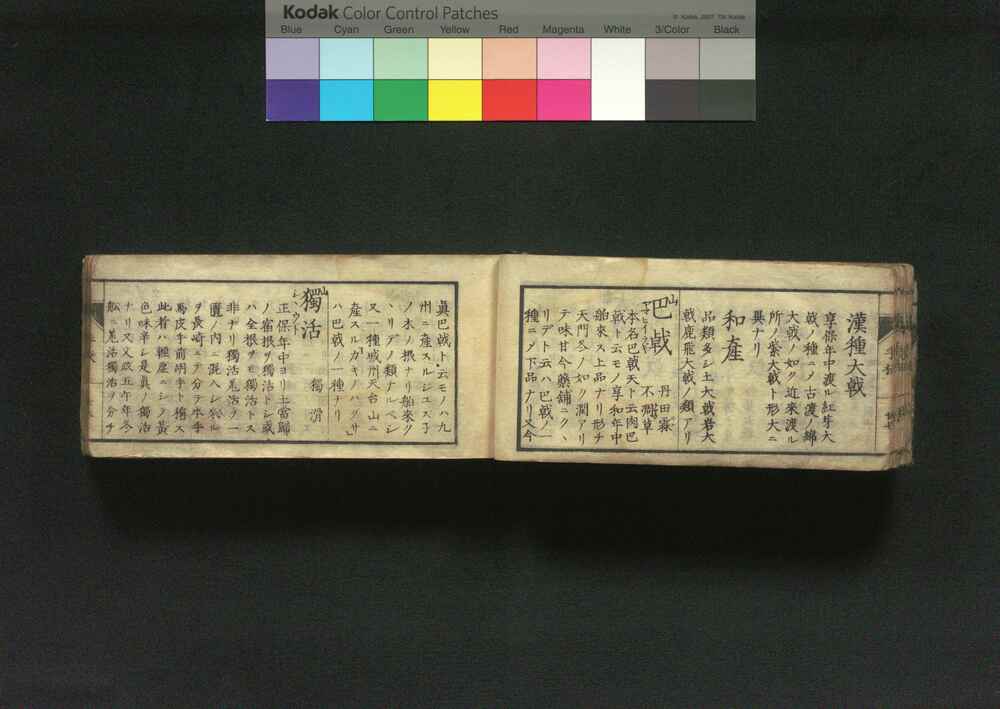 Kodak Color Control Patches
© Kodak, 2007 TM: Kodak
Blue Cyan Green Yellow Red Magenta White 3/Color Black
漢種大戟
享保年中渡ル紅牙大
戟ノ種ニ乄古渡ノ綿
大戟ノ如ク近来渡ル
所ノ紫大戟ト形大ニ
異ナリ
和産
品類多シ土大戟岩大
戟鹿飛大戟ノ類アリ
巴戟
丹田霖
不凋草
本名巴戟天ト云肉巴
戟ト云モノ享和年中
舶来ス上品ナリ形チ
天門冬ノ如ク潤アリ
テ味甘今藥舗ニクヽ
リデト云ハ巴戟ノ一
種ニ乄下品ナリ又今
眞巴戟ト云モノハ九
州ニ産スルジユズ子
ノ木ノ根ナリ舶來ク
ヽリデノ類ナルベシ
又一種城州天台山ニ
産スルカキノハグサ
ハ巴戟ノ一種ナリ
獨活
獨滑
正保年中ヨリ土當歸
ノ宿根ヲ獨活トシ或
ハ全根ヲモ獨活トス
非ナリ獨活羗活ヲ一
匱ノ内ニ混ハシ來ル
ヲ長崎ニテ分テ本手
馬皮手前胡手ト揃ス
此者ハ輕虚ニシ黃
色味辛シ是眞ノ獨活
ナリ又文政五午年冬
舩羗活獨活ヲ分チ